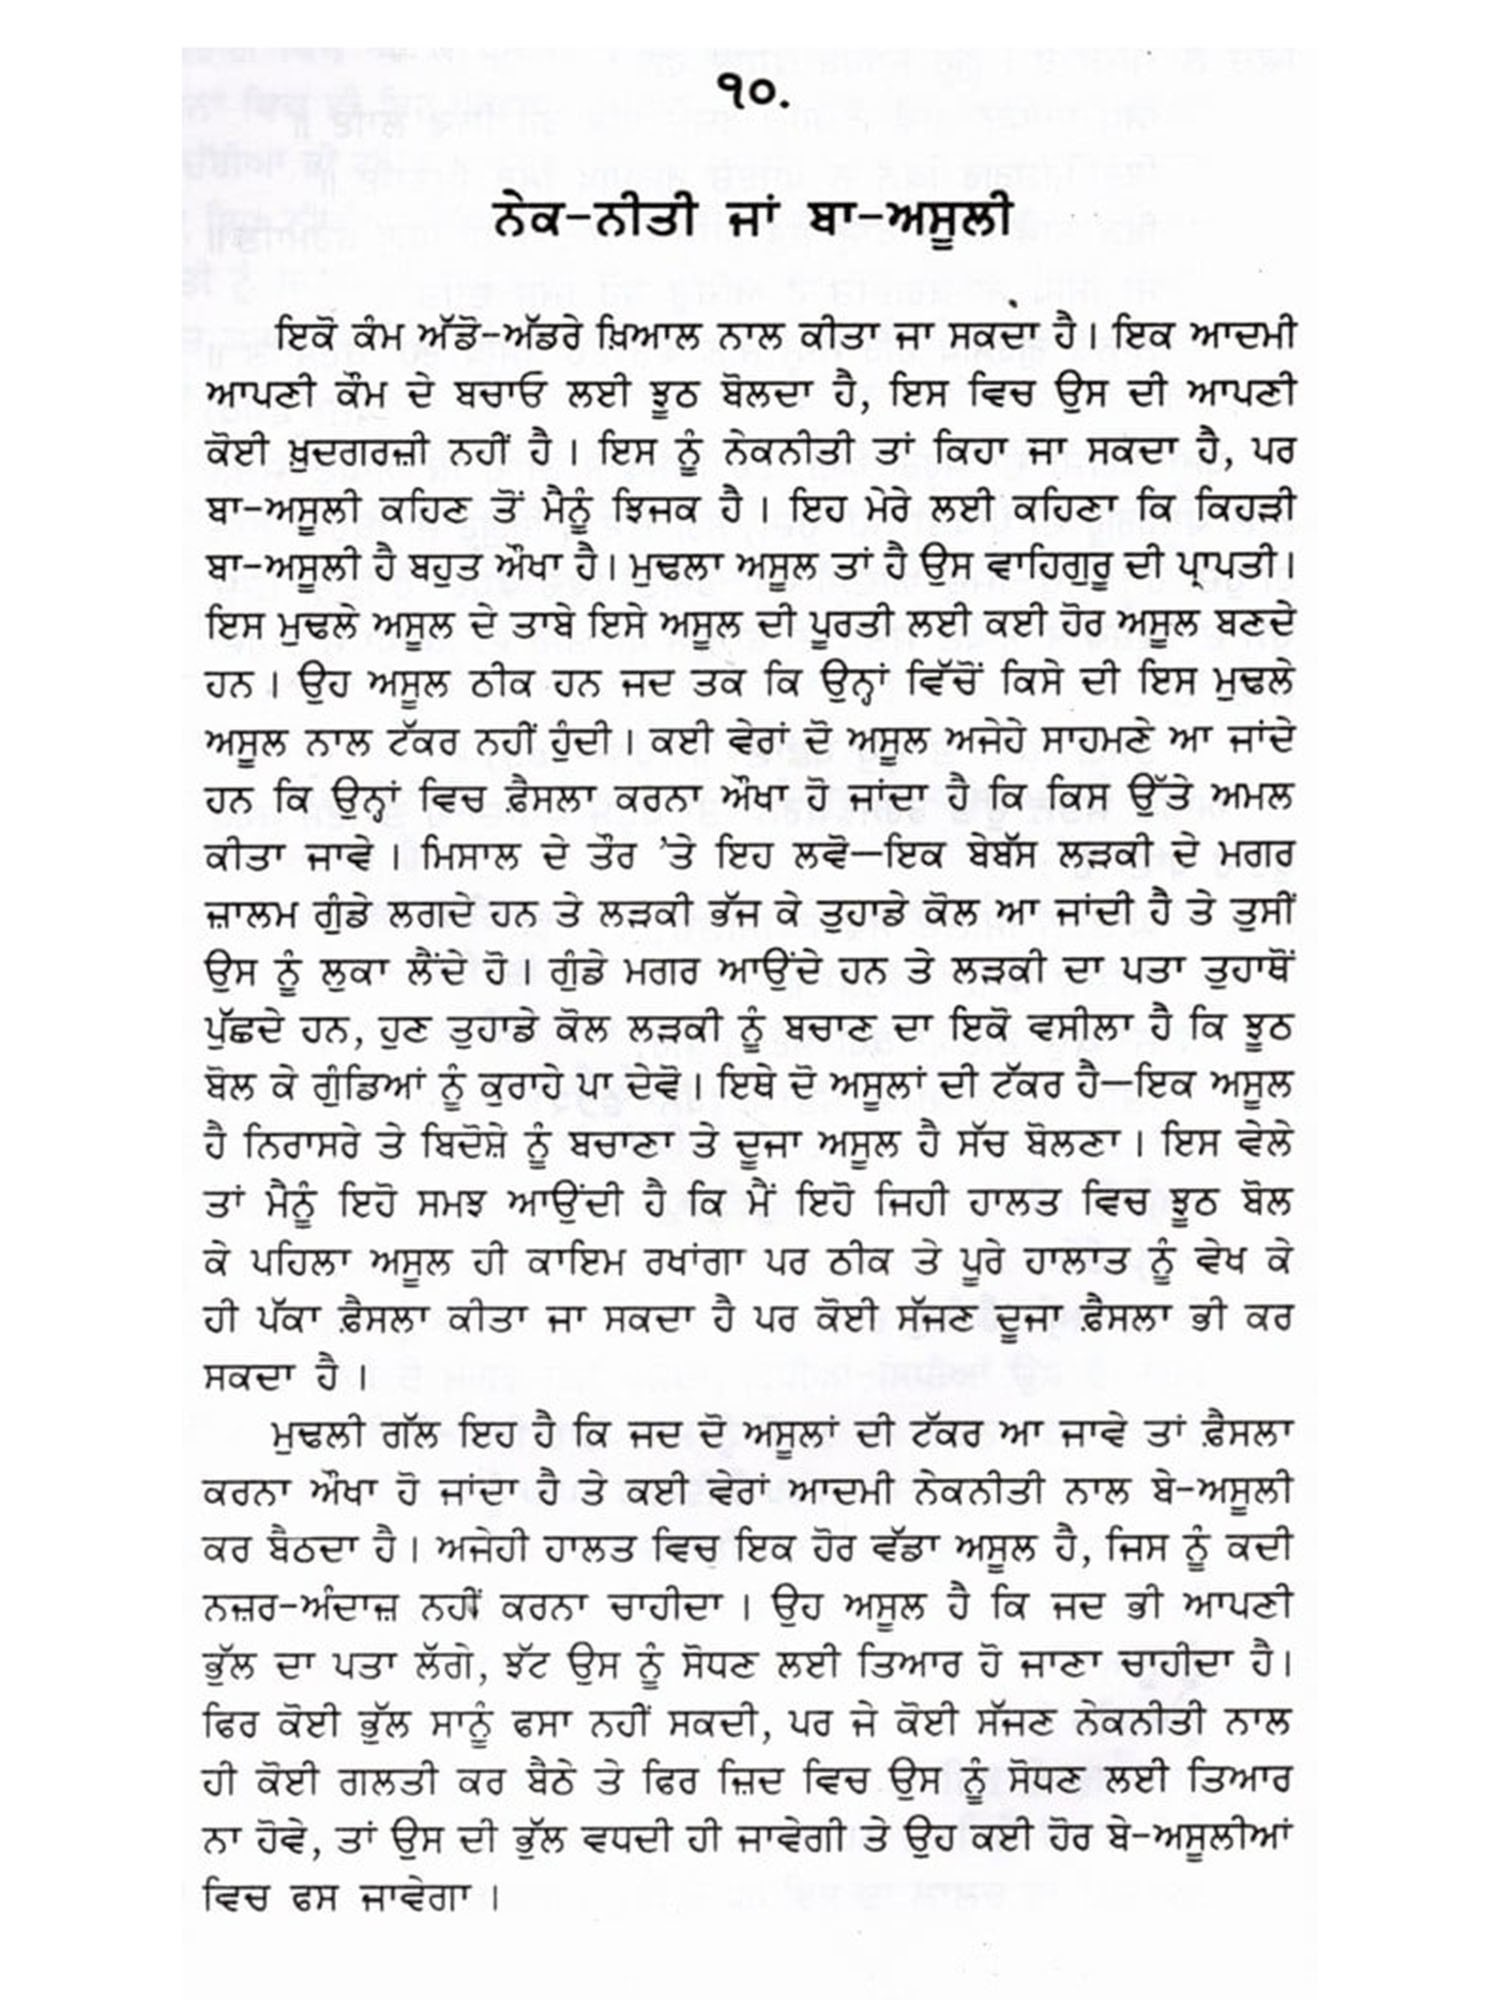 ੧੦.
ਨੇਕ-ਨੀਤੀ ਜਾਂ ਬਾ-ਅਸੂਲੀ
ਇਕੋ ਕੰਮ ਅੱਡੋ-ਅੱਡਰੇ ਖ਼ਿਆਲ ਨਾਲ ਕੀਤਾ ਜਾ ਸਕਦਾ ਹੈ। ਇਕ ਆਦਮੀ
ਆਪਣੀ ਕੌਮ ਦੇ ਬਚਾਓ ਲਈ ਝੂਠ ਬੋਲਦਾ ਹੈ, ਇਸ ਵਿਚ ਉਸ ਦੀ ਆਪਣੀ
ਕੋਈ ਖ਼ੁਦਗਰਜ਼ੀ ਨਹੀਂ ਹੈ। ਇਸ ਨੂੰ ਨੇਕਨੀਤੀ ਤਾਂ ਕਿਹਾ ਜਾ ਸਕਦਾ ਹੈ, ਪਰ
ਬਾ-ਅਸੂਲੀ ਕਹਿਣ ਤੋਂ ਮੈਨੂੰ ਝਿਜਕ ਹੈ। ਇਹ ਮੇਰੇ ਲਈ ਕਹਿਣਾ ਕਿ ਕਿਹੜੀ
ਬਾ-ਅਸੂਲੀ ਹੈ ਬਹੁਤ ਔਖਾ ਹੈ। ਮੁਢਲਾ ਅਸੂਲ ਤਾਂ ਹੈ ਉਸ ਵਾਹਿਗੁਰੂ ਦੀ ਪ੍ਰਾਪਤੀ।
ਇਸ ਮੁਢਲੇ ਅਸੂਲ ਦੇ ਤਾਬੇ ਇਸੇ ਅਸੂਲ ਦੀ ਪੂਰਤੀ ਲਈ ਕਈ ਹੋਰ ਅਸੂਲ ਬਣਦੇ
ਹਨ। ਉਹ ਅਸੂਲ ਠੀਕ ਹਨ ਜਦ ਤਕ ਕਿ ਉਨ੍ਹਾਂ ਵਿੱਚੋਂ ਕਿਸੇ ਦੀ ਇਸ ਮੁਢਲੇ
ਅਸੂਲ ਨਾਲ ਟੱਕਰ ਨਹੀਂ ਹੁੰਦੀ। ਕਈ ਵੇਰਾਂ ਦੋ ਅਸੂਲ ਅਜੇਹੇ ਸਾਹਮਣੇ ਆ ਜਾਂਦੇ
ਹਨ ਕਿ ਉਨ੍ਹਾਂ ਵਿਚ ਫ਼ੈਸਲਾ ਕਰਨਾ ਔਖਾ ਹੋ ਜਾਂਦਾ ਹੈ ਕਿ ਕਿਸ ਉੱਤੇ ਅਮਲ
ਕੀਤਾ ਜਾਵੇ। ਮਿਸਾਲ ਦੇ ਤੌਰ ’ਤੇ ਇਹ ਲਵੋ—ਇਕ ਬੇਬੱਸ ਲੜਕੀ ਦੇ ਮਗਰ
ਜ਼ਾਲਮ ਗੁੰਡੇ ਲਗਦੇ ਹਨ ਤੇ ਲੜਕੀ ਭੱਜ ਕੇ ਤੁਹਾਡੇ ਕੋਲ ਆ ਜਾਂਦੀ ਹੈ ਤੇ ਤੁਸੀਂ
ਉਸ ਨੂੰ ਲੁਕਾ ਲੈਂਦੇ ਹੋ। ਗੁੰਡੇ ਮਗਰ ਆਉਂਦੇ ਹਨ ਤੇ ਲੜਕੀ ਦਾ ਪਤਾ ਤੁਹਾਥੋਂ
ਪੁੱਛਦੇ ਹਨ, ਹੁਣ ਤੁਹਾਡੇ ਕੋਲ ਲੜਕੀ ਨੂੰ ਬਚਾਣ ਦਾ ਇਕੋ ਵਸੀਲਾ ਹੈ ਕਿ ਝੂਠ
ਬੋਲ ਕੇ ਗੁੰਡਿਆਂ ਨੂੰ ਕੁਰਾਹੇ ਪਾ ਦੇਵੋ। ਇਥੇ ਦੋ ਅਸੂਲਾਂ ਦੀ ਟੱਕਰ ਹੈ—ਇਕ ਅਸੂਲ
ਹੈ ਨਿਰਾਸਰੇ ਤੇ ਬਿਦੋਸ਼ੇ ਨੂੰ ਬਚਾਣਾ ਤੇ ਦੂਜਾ ਅਸੂਲ ਹੈ ਸੱਚ ਬੋਲਣਾ। ਇਸ ਵੇਲੇ
ਤਾਂ ਮੈਨੂੰ ਇਹੋ ਸਮਝ ਆਉਂਦੀ ਹੈ ਕਿ ਮੈਂ ਇਹੋ ਜਿਹੀ ਹਾਲਤ ਵਿਚ ਝੂਠ ਬੋਲ
ਕੇ ਪਹਿਲਾ ਅਸੂਲ ਹੀ ਕਾਇਮ ਰਖਾਂਗਾ ਪਰ ਠੀਕ ਤੇ ਪੂਰੇ ਹਾਲਾਤ ਨੂੰ ਵੇਖ ਕੇ
ਹੀ ਪੱਕਾ ਫ਼ੈਸਲਾ ਕੀਤਾ ਜਾ ਸਕਦਾ ਹੈ ਪਰ ਕੋਈ ਸੱਜਣ ਦੂਜਾ ਫ਼ੈਸਲਾ ਭੀ ਕਰ
ਸਕਦਾ ਹੈ।
ਮੁਢਲੀ ਗੱਲ ਇਹ ਹੈ ਕਿ ਜਦ ਦੋ ਅਸੂਲਾਂ ਦੀ ਟੱਕਰ ਆ ਜਾਵੇ ਤਾਂ ਫ਼ੈਸਲਾ
ਕਰਨਾ ਔਖਾ ਹੋ ਜਾਂਦਾ ਹੈ ਤੇ ਕਈ ਵੇਰਾਂ ਆਦਮੀ ਨੇਕਨੀਤੀ ਨਾਲ ਬੇ-ਅਸੂਲੀ
ਕਰ ਬੈਠਦਾ ਹੈ। ਅਜੇਹੀ ਹਾਲਤ ਵਿਚ ਇਕ ਹੋਰ ਵੱਡਾ ਅਸੂਲ ਹੈ, ਜਿਸ ਨੂੰ ਕਦੀ
ਨਜ਼ਰ-ਅੰਦਾਜ਼ ਨਹੀਂ ਕਰਨਾ ਚਾਹੀਦਾ। ਉਹ ਅਸੂਲ ਹੈ ਕਿ ਜਦ ਭੀ ਆਪਣੀ
ਭੁੱਲ ਦਾ ਪਤਾ ਲੱਗੇ, ਝੱਟ ਉਸ ਨੂੰ ਸੋਧਣ ਲਈ ਤਿਆਰ ਹੋ ਜਾਣਾ ਚਾਹੀਦਾ ਹੈ।
ਫਿਰ ਕੋਈ ਭੁੱਲ ਸਾਨੂੰ ਫਸਾ ਨਹੀਂ ਸਕਦੀ, ਪਰ ਜੇ ਕੋਈ ਸੱਜਣ ਨੇਕਨੀਤੀ ਨਾਲ
ਹੀ ਕੋਈ ਗਲਤੀ ਕਰ ਬੈਠੇ ਤੇ ਫਿਰ ਜ਼ਿਦ ਵਿਚ ਉਸ ਨੂੰ ਸੋਧਣ ਲਈ ਤਿਆਰ
ਨਾ ਹੋਵੇ, ਤਾਂ ਉਸ ਦੀ ਭੁੱਲ ਵਧਦੀ ਹੀ ਜਾਵੇਗੀ ਤੇ ਉਹ ਕਈ ਹੋਰ ਬੇ-ਅਸੂਲੀਆਂ
ਵਿਚ ਫਸ ਜਾਵੇਗਾ।